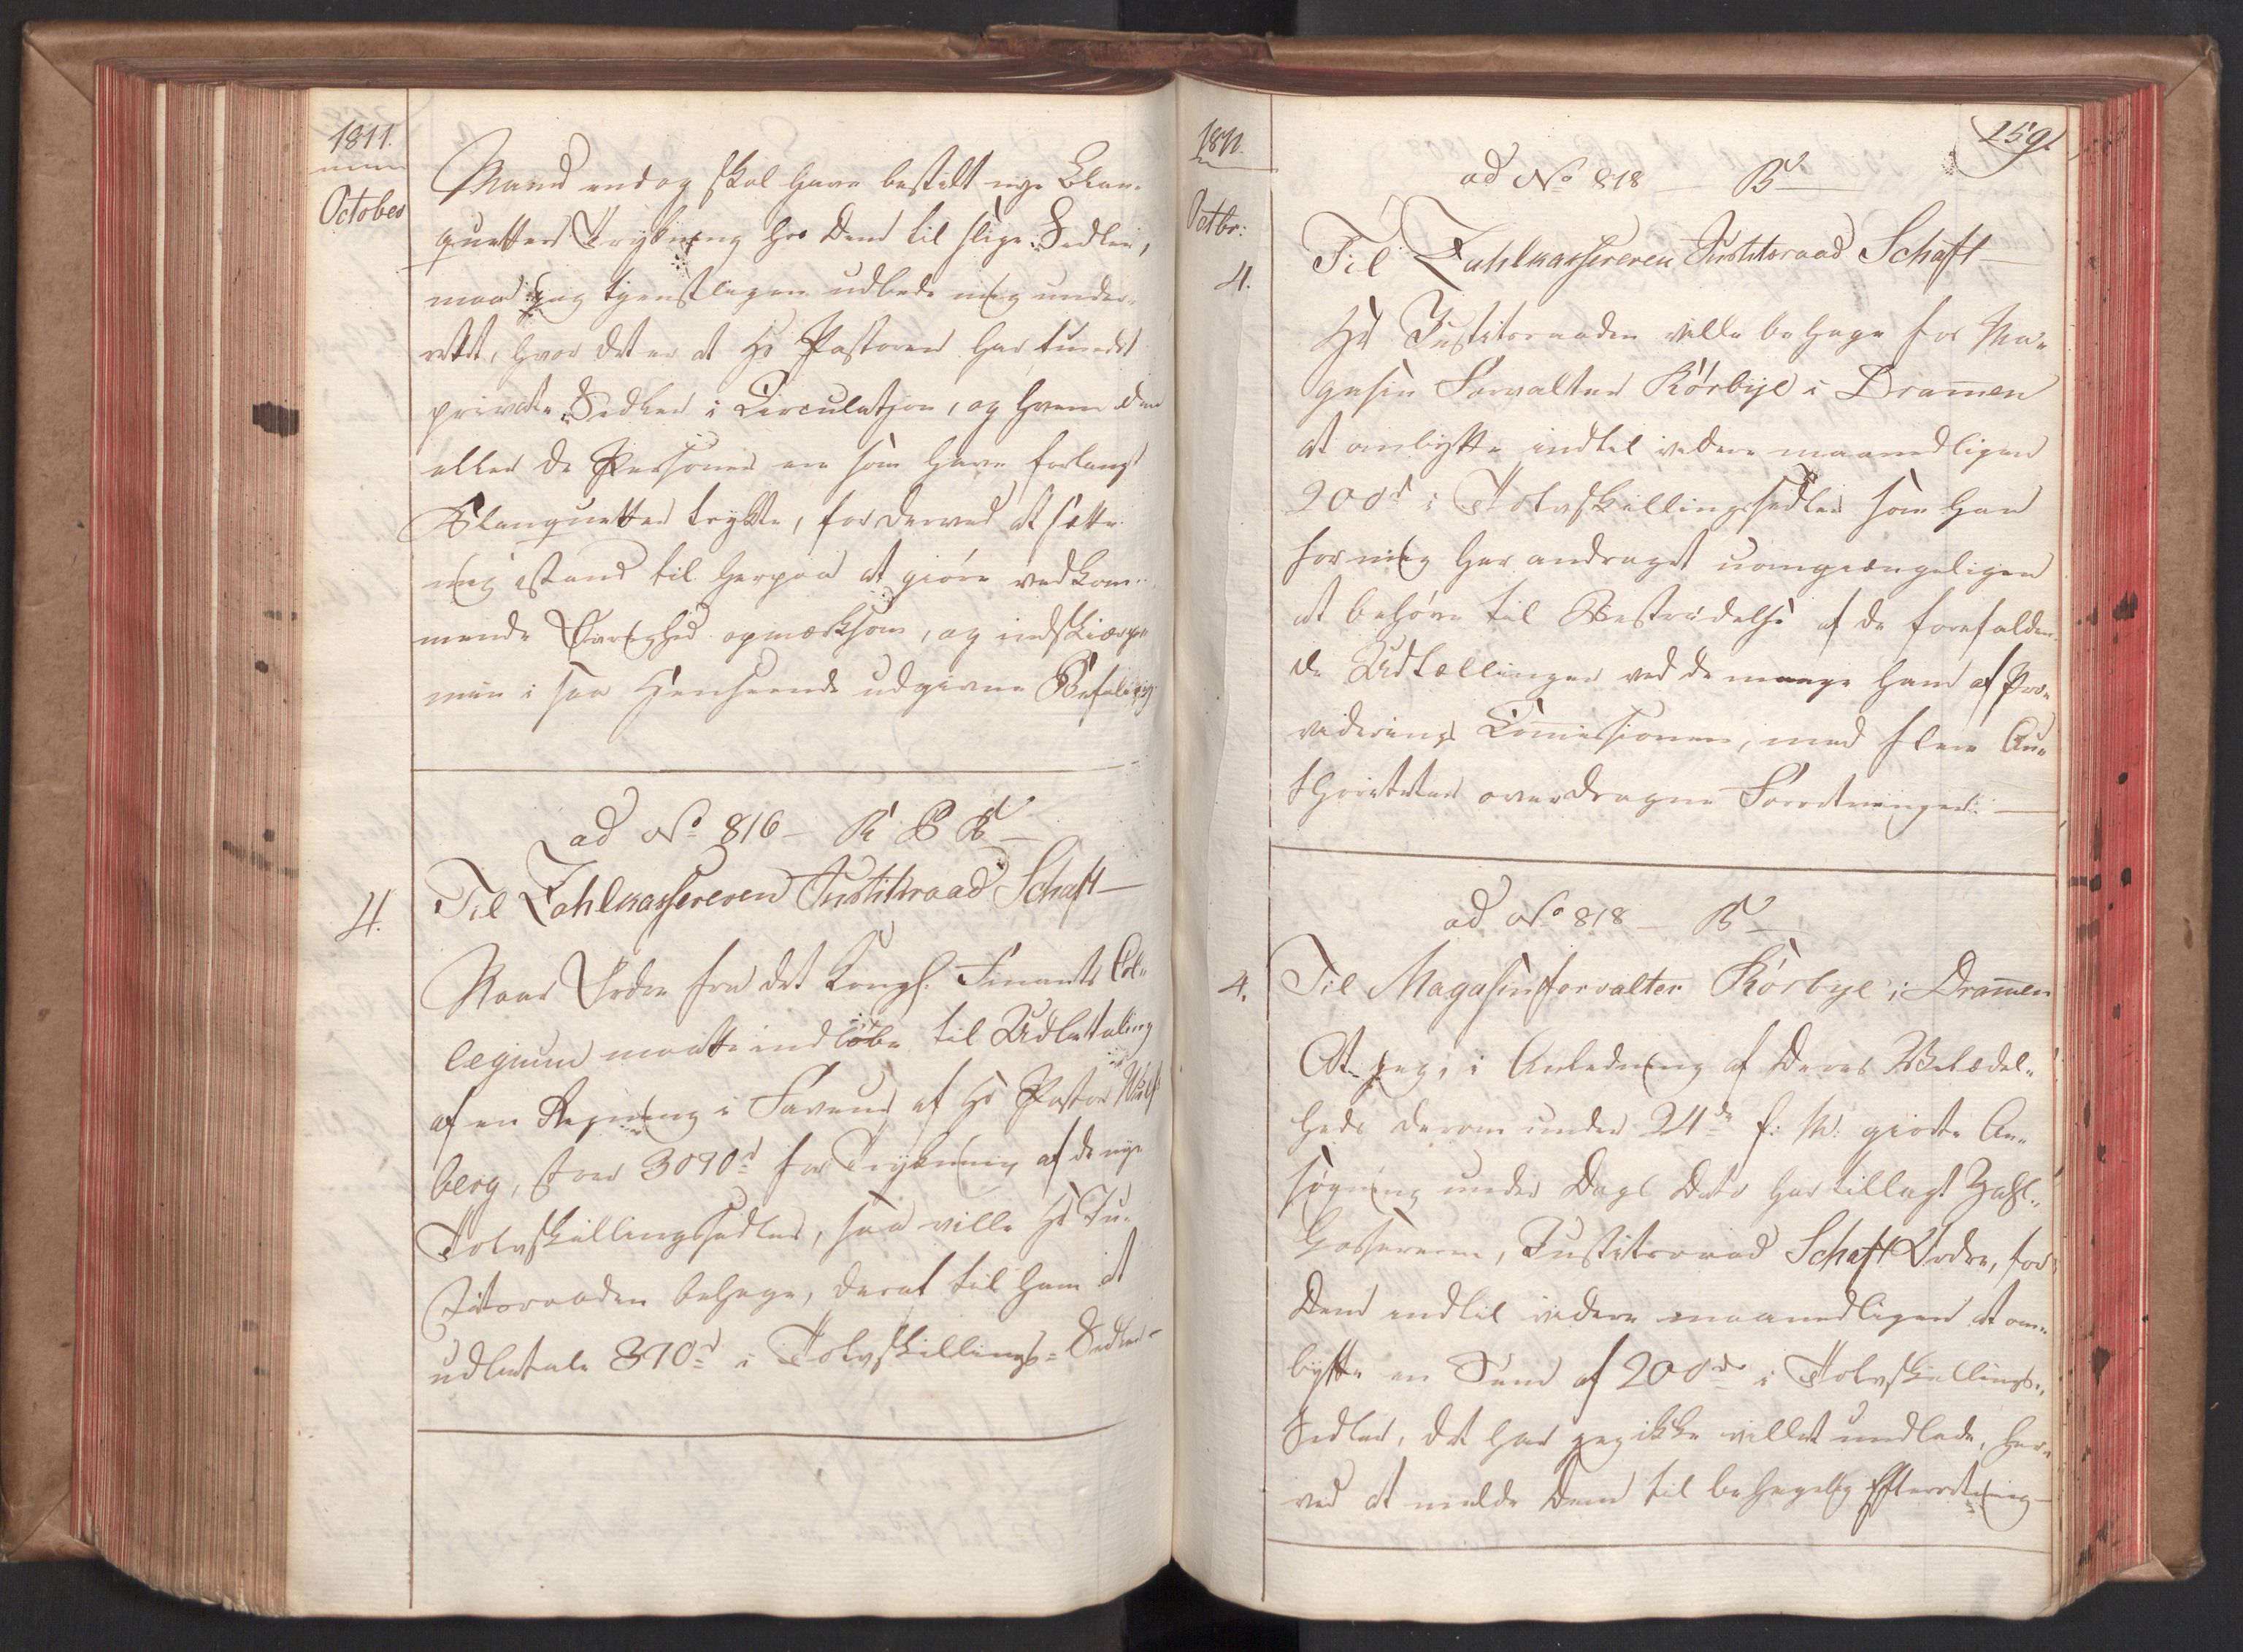 1811.
October
Mand endog skal have bestilt nye Blan-
quetters Trykning hos Dem til slige Sedler,
maa jeg tjenstligen udbede mig under-
rettet, hvor det er at Hr Pastoren har fundet
private Sedler i Circulation, og hvem den
eller de Personer ere som have forlangt
Blanquetter trykte, for derved at sætte
mig istand til herpaa at giøre vedkom-
mende Øvrighed opmærksom, og indskiærpe
min i saa Henseende udgivne Befaling
ad No 816 —
4.
Til Zahlkassereren Justitsraad Schaft —
Naar Ordre fra det Kongl. Finants Col-
legium maatte indløbe til Udbetaling
af en Regning i Faveur af Hr Pastor Wulfs-
berg, stor 3090 rd for Trykning af de nye
Tolvskillingssedler, saa ville Hr Ju-
stitsraaden behage, deraf til ham at
udbetale 390 rd i Tolvskillings-Sedler —
1811.
Octbr:
259.
ad No 818 — B
4.
Til Zahlkassereren Justitsraad Schaft —
Hr Justitsraaden ville behage for Ma-
gasin Forvalter Kørbye i Drammen
at ombytte indtil videre maanedligen
200 rd i Tolvskillingssedler som han
for mig har andraget uomgiængeligen
at behøve til Bestridelse af de forefalden-
de Udtællinger ved de mange ham af Pro-
viderings Commissionen, med flere Au-
thoriteter overdragne Forretninger. —
ad No 818 — B
4.
Til Magasinforvalter Kørbye i Drammen
At jeg, i Anledning af Deres Velædel-
heds derom under 24de f: M: giorte An-
søgning under Dags Dato har tillagt Zahl-
Cassereren, Justitsraad Schaft Ordre, for
Dem indtil videre maanedligen at om-
bytte en Sum af 200 rd i Tolvskillings-
Sedler, det har jeg ikke villet undlade, her-
ved at melde Dem til behagelig Efterretning